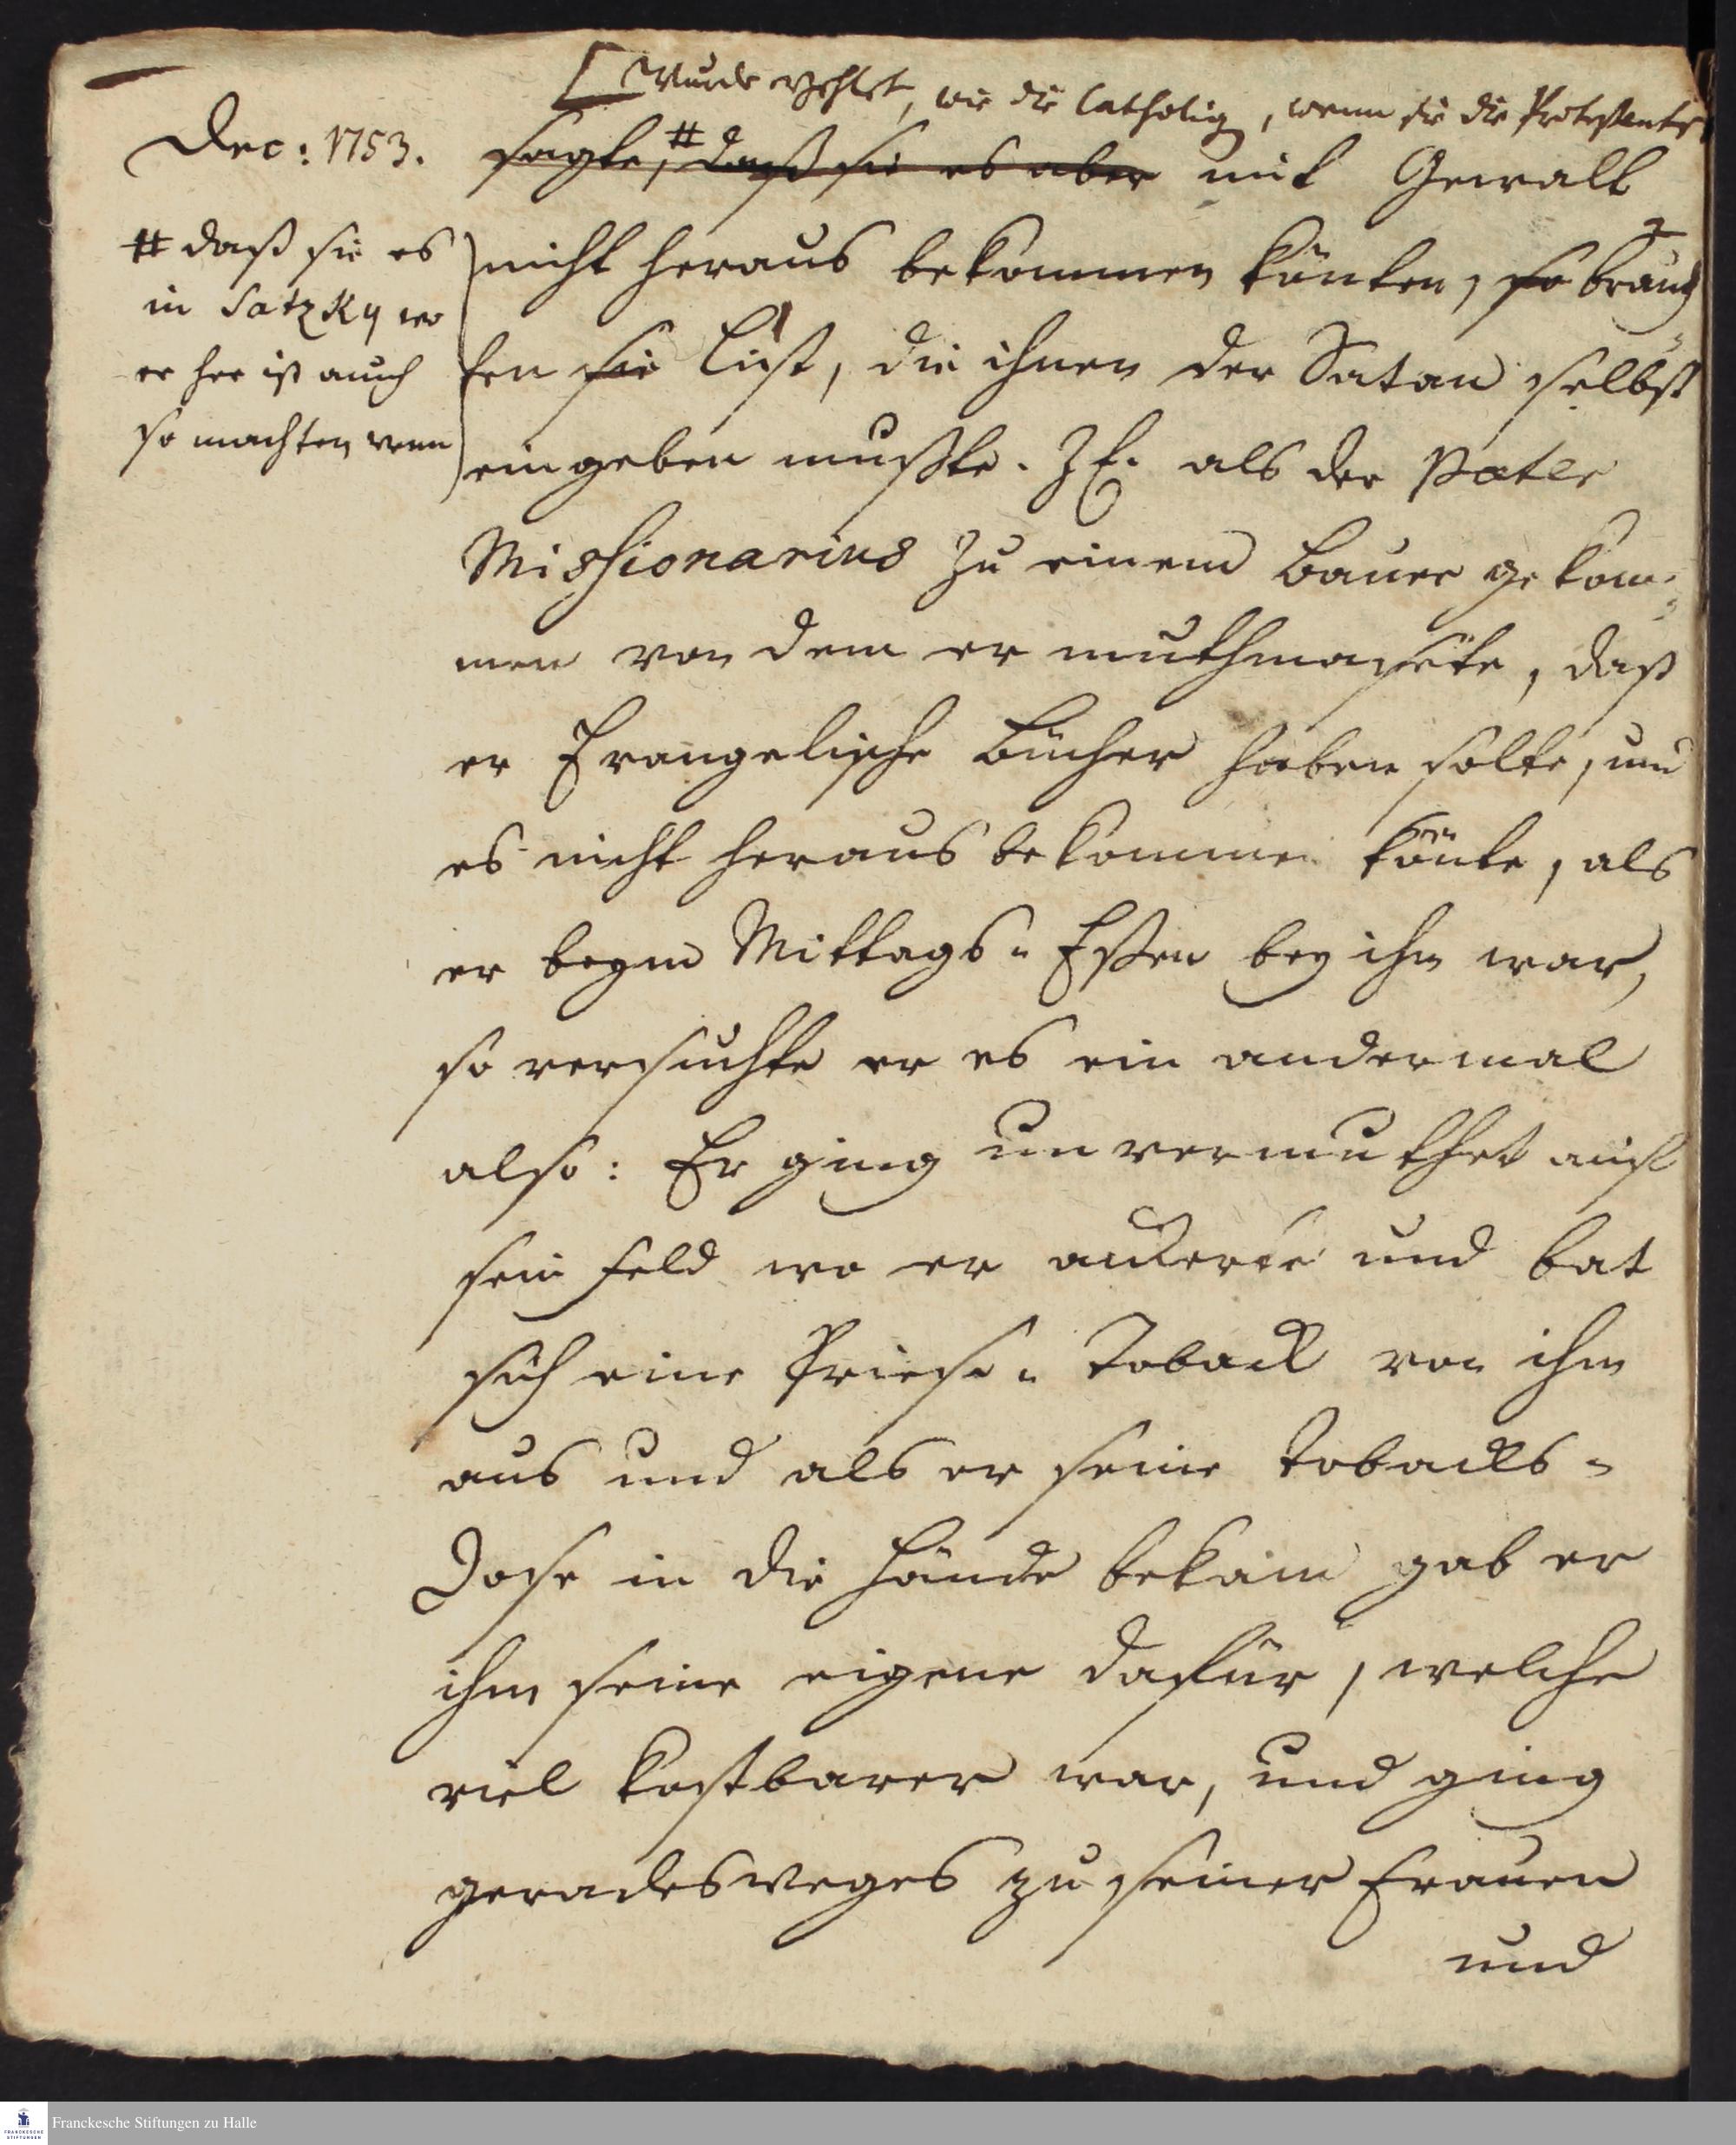 [Wurde erzehlet, wie die Catholiq, wenn sie die Protestante
Dec: 1753.
sagte, # daß sie es aber mit Gewalt
# daß sie es
in Satzky wo
er her ist auch
so machten wenn
nicht heraus bekommen könten, so brauch
ten sie List, die ihnen der Satan selbst
eingeben muste. ZE. als der Pater
Missionarius zu einem Bauer gekom-
men von dem er muthmasete, daß
er Evangelische Bücher haben solte, und
es nicht heraus bekommen könte, als
er beym Mittags-Eßen bey ihm war,
so versuchte er es ein andermal
also: Er ging unvermuthet auf
sein Feld wo er ackerte und bat
sich eine Priese-Toback von ihm
aus und als er seine Tobacks-
Dose in die Hände bekam gab er
ihm seine eigene dafür, welche
viel kostbarer war, und ging
geradesweges zu seiner Frauen
und
Franckesche Stiftungen zu Halle
FRANCKESCHE
STIFTUNGEN